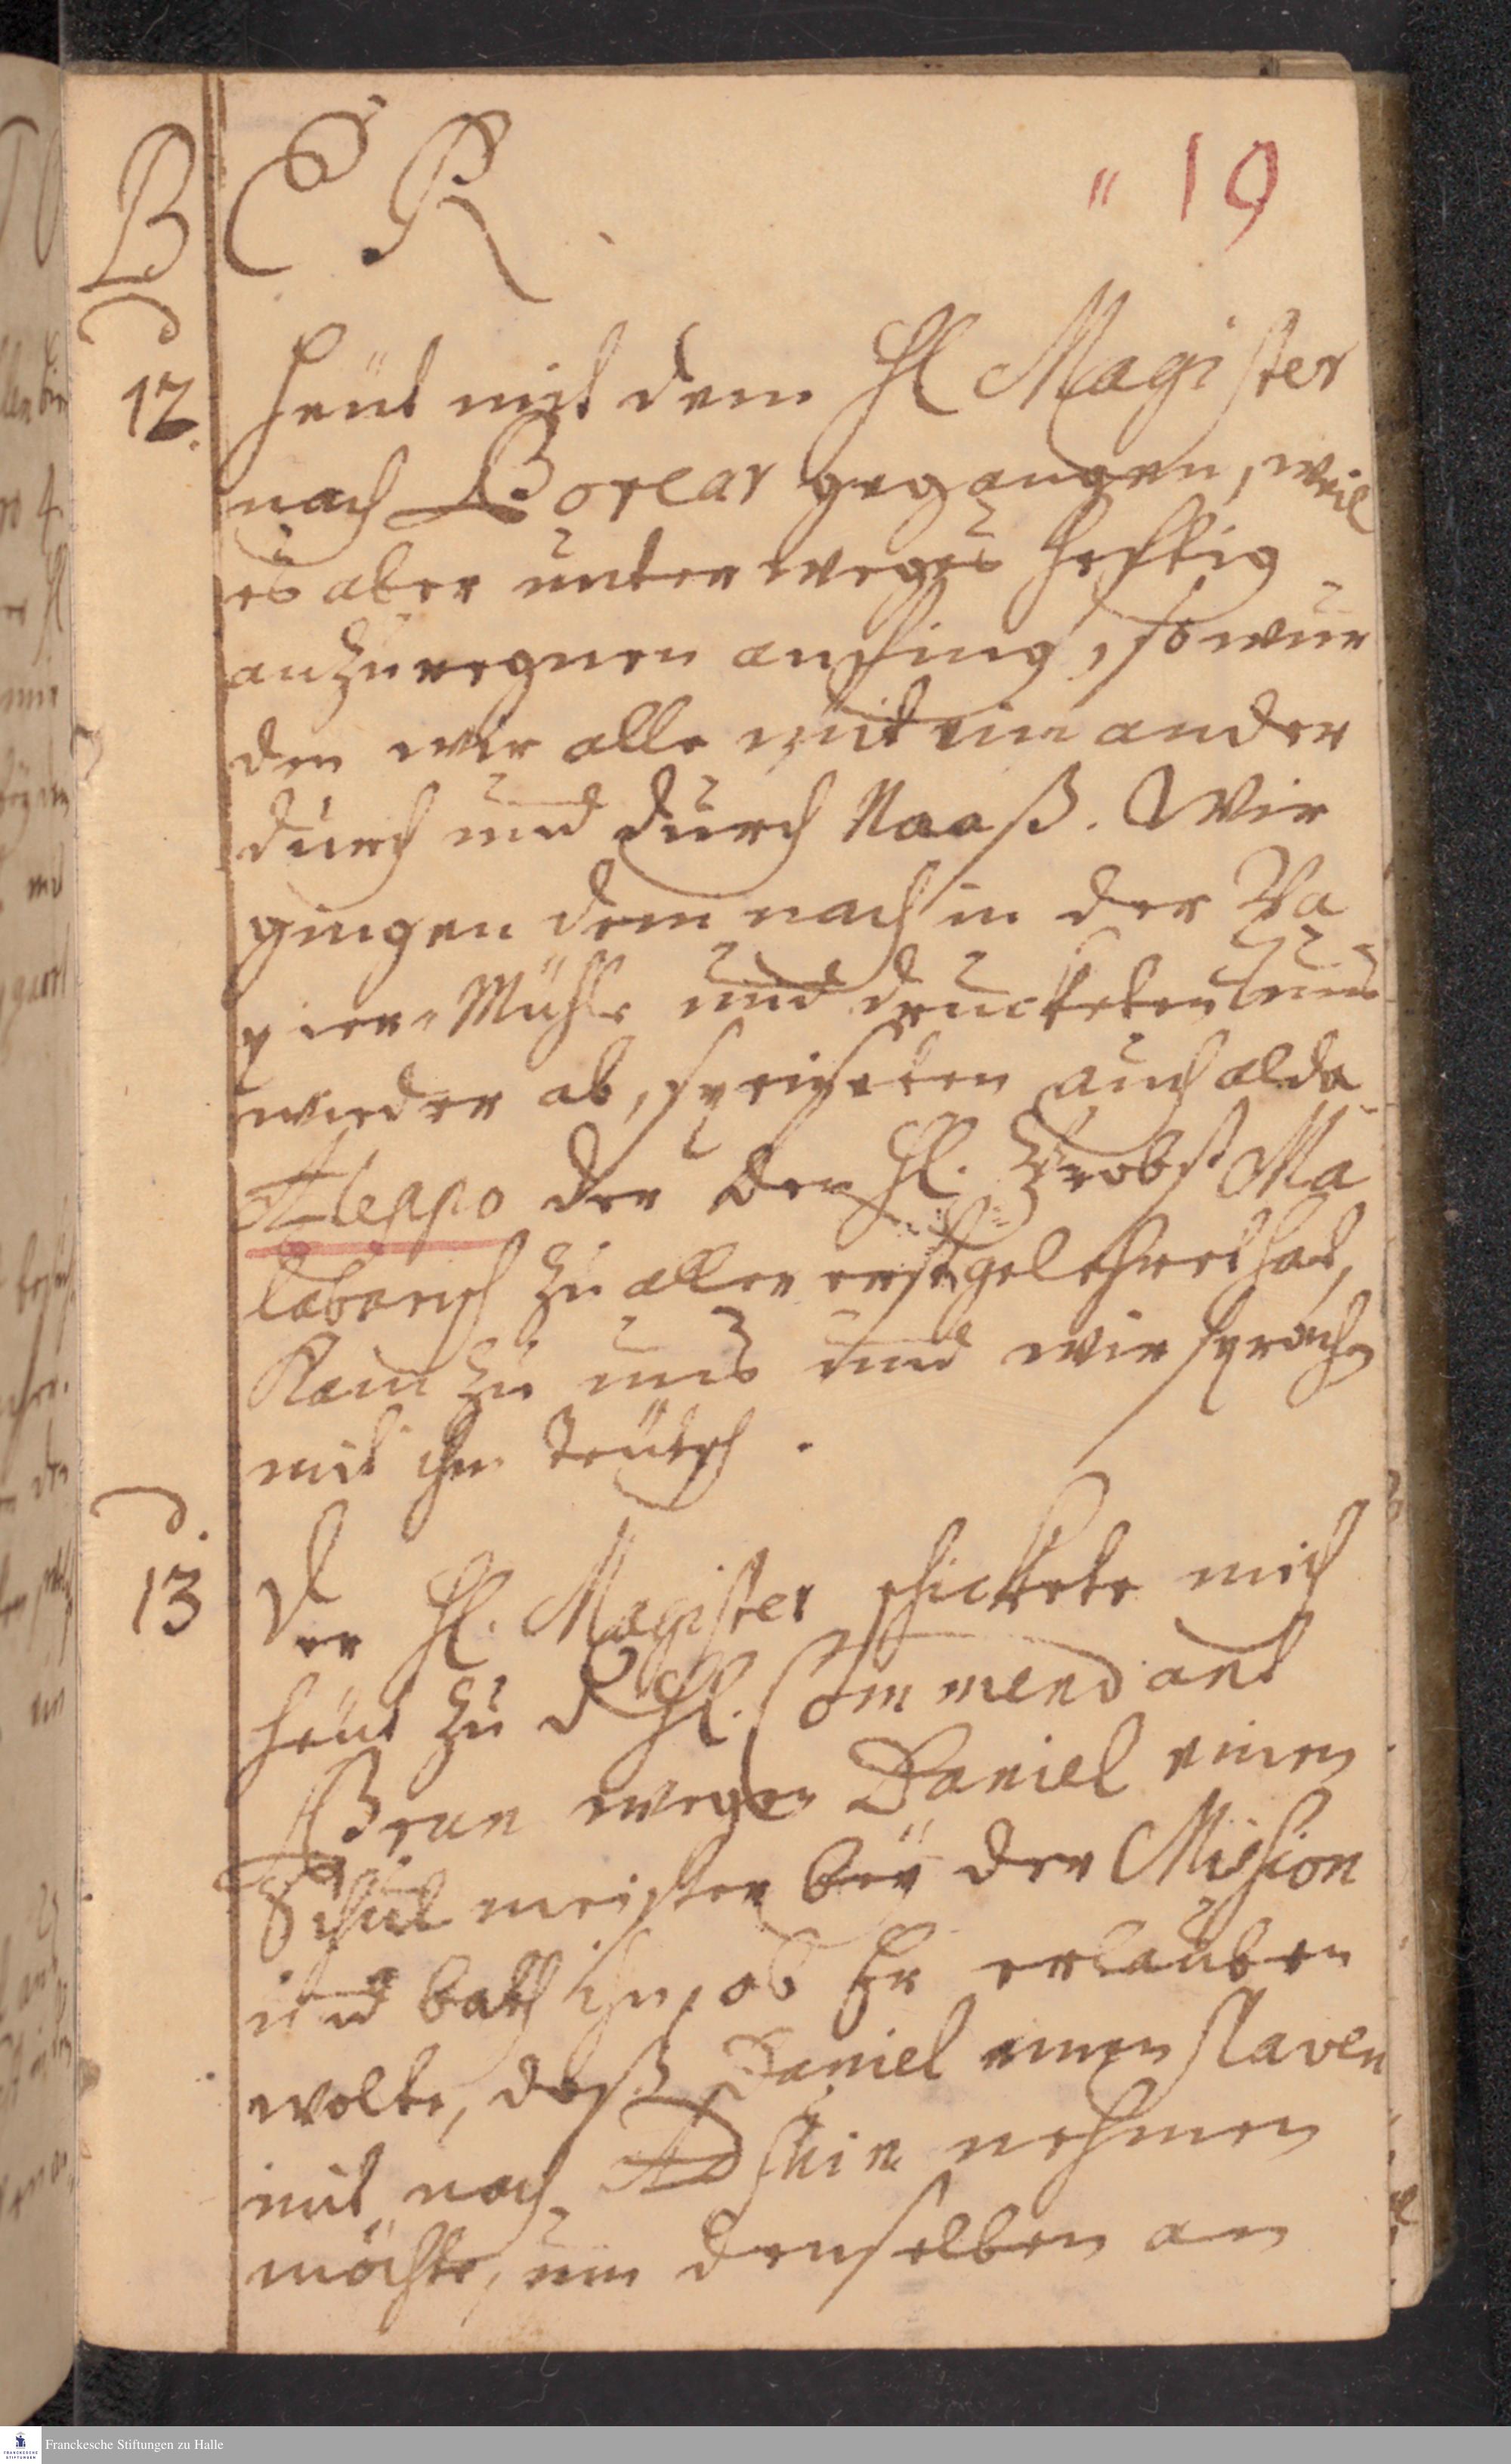 B E R. " 19
12. Heüt mit dem Hl Magister
nach Borear gegangen, weil
es aber unterweges hefftig
anzuregnen anfing, so wur
den wir alle mit ein ander
durch und durch Naaß. Wir
gingen dem nach in der Pa
pier-Mühle und druckete uns
wieder ab, speiseten auch alda
Aleppo der den Hl. Probst Ma
labarisch zu aller erst gelehret hat,
Kam zu uns und wir sprachen
mit ihm Teütsch.
13 Der Hl. Magister schickete mich
heüt zu d Hl. Commendant
Brun wegen Daniel einen
Schulmeister beÿ der Mission
und bath ihn, ob Er erlauben
wolte, daß Daniel einen slaven
mit nach Atschin nehmen
möchte, um denselben an
Franckesche Stiftungen zu Halle